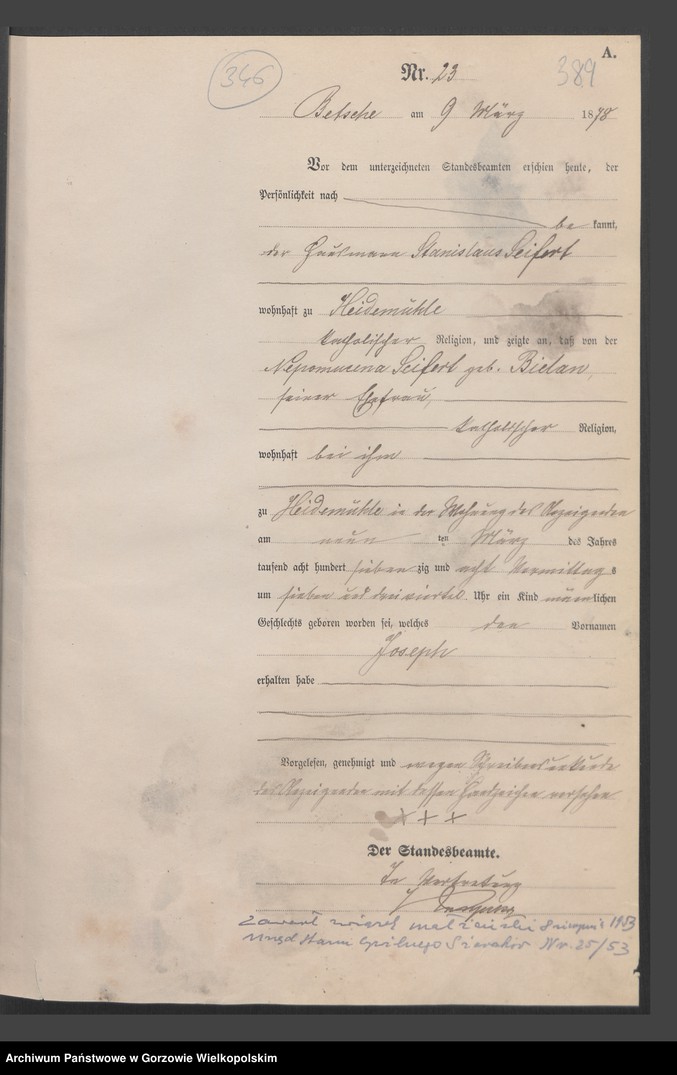 A.
346
389
Nr. 23
Betsche am 9 März 1878
Vor dem unterzeichneten Standesbeamten erschien heute, der
Persönlichkeit nach
be kannt,
der Hausmann Stanislaus Seifert
wohnhaft zu Heidemühle
katholischer Religion, und zeigte an, daß von der
Nepomucena Seifert geb. Bielan,
seiner Ehefrau,
katholischer Religion,
wohnhaft bei ihm
zu Heidemühle in der Wohnung des Anzeigenden
am neun ten März des Jahres
tausend acht hundert sieben zig und acht Vormittags
um sieben und dreiviertel Uhr ein Kind männlichen
Geschlechts geboren worden sei, welches den Vornamen
Joseph
erhalten habe
Vorgelesen, genehmigt und wegen Schreibensunkunde
des Anzeigenden mit dessen Handzeichen versehen
+ + +
Der Standesbeamte.
In Vertretung
zawarł związek małżeński 8 sierpnia 1953
Urząd Stanu Cywilnego Nr. 25/53
Archiwum Państwowe w Gorzowie Wielkopolskim